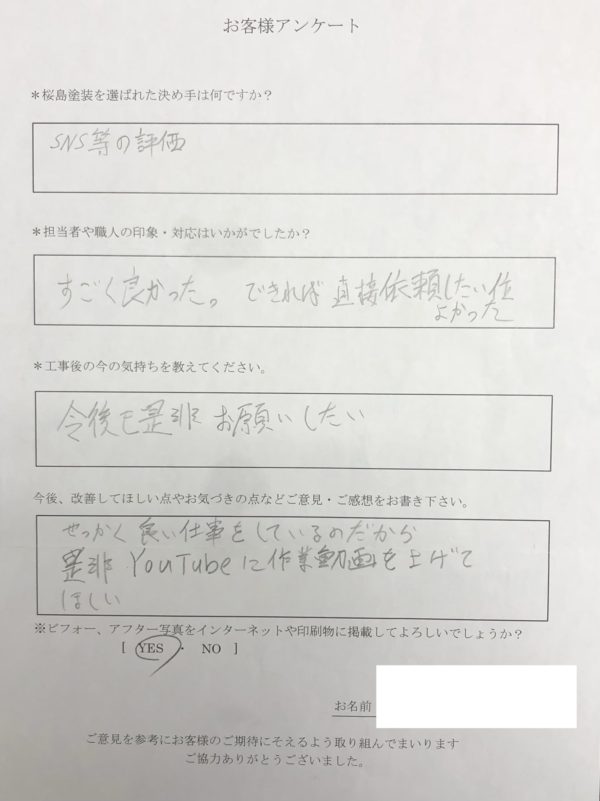 お客様アンケート
＊桜島塗装を選ばれた決め手は何ですか？
SNS等の評価
＊担当者や職人の印象・対応はいかがでしたか？
すごく良かった。できれば直接依頼したい位
よかった
＊工事後の今の気持ちを教えてください。
今後も是非お願いしたい
今後、改善してほしい点やお気づきの点などご意見・ご感想をお書き下さい。
せっかく良い仕事をしているのだから
是非YouTubeに作業動画を上げて
ほしい
※ビフォー、アフター写真をインターネットや印刷物に掲載してよろしいでしょうか？
[ YES ・ NO ]
お名前
ご意見を参考にお客様のご期待にそえるよう取り組んでまいります
ご協力ありがとうございました。